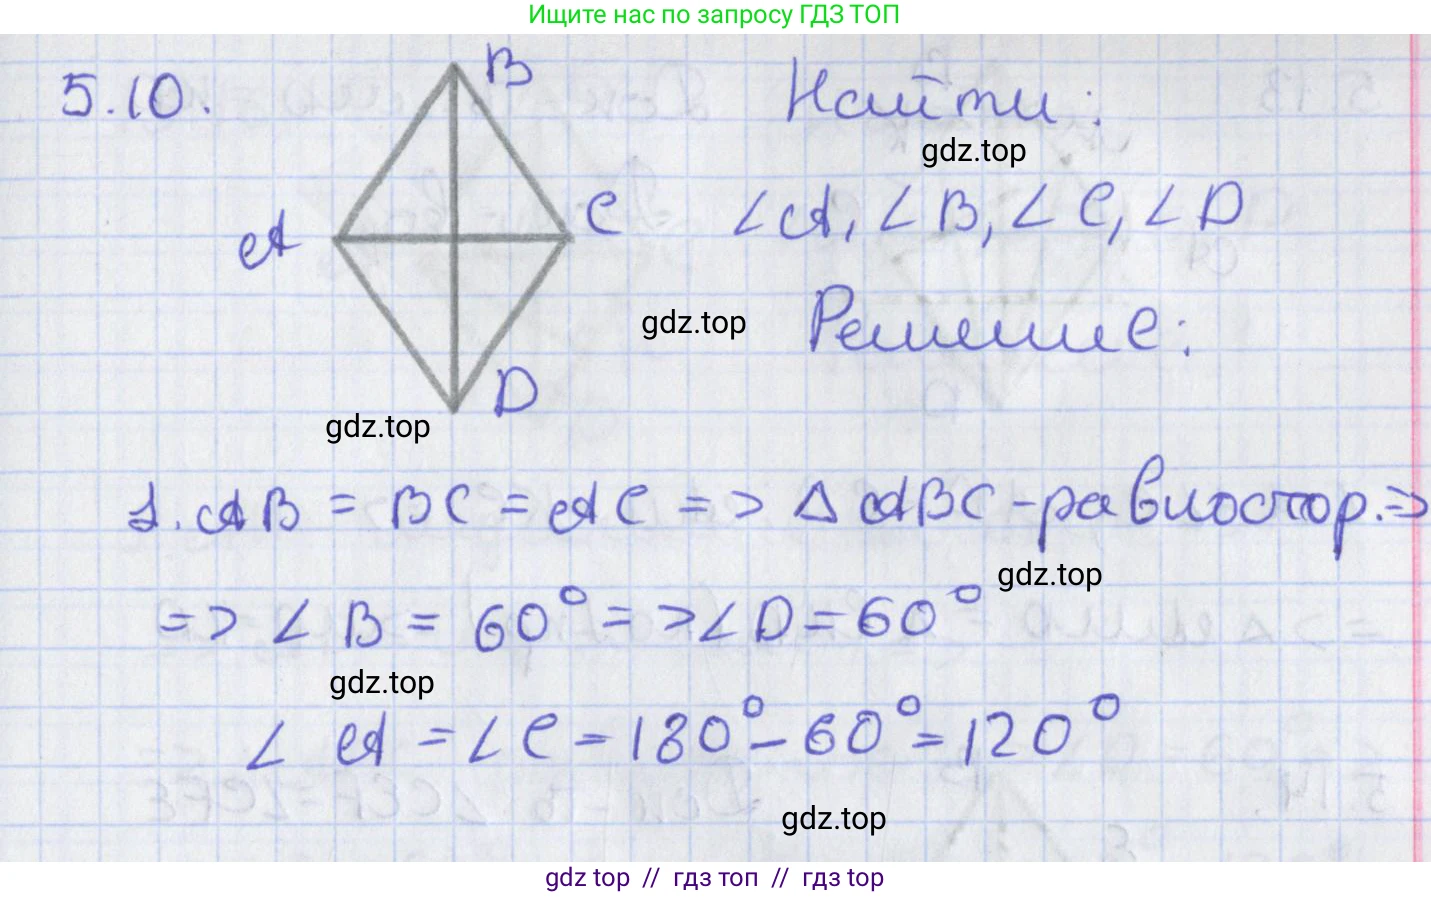 Ищите нас по запросу ГДЗ ТОП
5.10.
B
Найти:
gdz.top
A
C
∠A, ∠B, ∠C, ∠D
gdz.top
Решение:
D
gdz.top
1. AB = BC = AC => Δ ABC - равностор. =>
gdz.top
=> ∠B = 60° => ∠D = 60°
gdz.top
∠A = ∠C = 180° - 60° = 120°
gdz.top
gdz top // гдз топ // гдз top